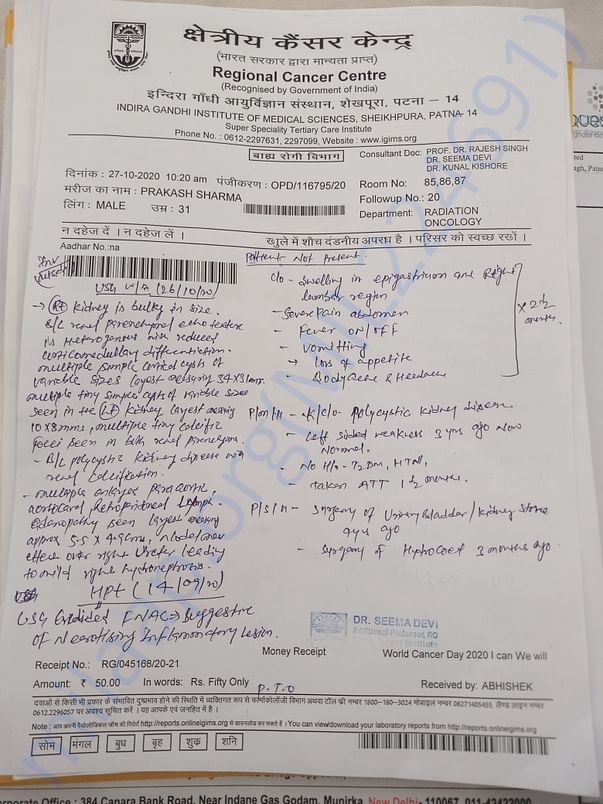 क्षेत्रीय कैंसर केन्द्र
(भारत सरकार द्वारा मान्यता प्राप्त)
Regional Cancer Centre
(Recognised by Government of India)
इन्दिरा गाँधी आयुर्विज्ञान संस्थान, शेखपूरा, पटना – 14
INDIRA GANDHI INSTITUTE OF MEDICAL SCIENCES, SHEIKHPURA, PATNA- 14
Super Speciality Tertiary Care Institute
Phone No. : 0612-2297631, 2297099, Website : www.igims.org
बाह्य रोगी विभाग
Consultant Doc: PROF. DR. RAJESH SINGH
DR. SEEMA DEVI
DR. KUNAL KISHORE
दिनांक : 27-10-2020 10:20 am पंजीकरण : OPD/116795/20
Room No: 85,86,87
मरीज का नाम : PRAKASH SHARMA
Followup No.: 20
लिंग : MALE उम्र : 31
Department: RADIATION
ONCOLOGY
न दहेज दें । न दहेज लें ।
खुले में शौच दंडनीय अपराध है । परिसर को स्वच्छ रखों ।
Aadhar No.:na
Patient Not Present.
USG W/A (26/10/20)
→ Rt kidney is bulky in size.
B/L renal parenchymal echotexture
is Heterogenous with reduced
corticomedullary differentiation.
multiple simple cortical cysts of
variable sizes largest measuring 34x31mm.
multiple tiny simple cysts of variable sizes
seen in the Lt kidney largest measuring
10x8mm, multiple tiny calcific
foci seen in both renal parenchyma.
- B/L polycystic kidney disease with
renal calcification.
- multiple enlarged para aortic,
aortocaval retroperitoneal lymph-
adenopathy seen largest measuring
approx 5.5 x 4.9cm,
effect over right Ureter leading
to mild right hydronephrosis.
HPE (14/09/20)
USG Guided FNAC → Suggestive
of Necrotising Inflammatory lesion.
c/o - Swelling in epigastrium and Right
lumbar region
- Sever Pain abdomen
- Fever on/off
- Vomitting
→ Loss of appetite
- Bodyache & Headache
x 2½
months.
P/M/H - K/c/o- Polycystic kidney disease.
- Left sided weakness 3 yrs ago Now
Normal.
- No H/o- T2DM, HTN,
- taken ATT 1½ months.
P/S/H - Surgery of Urinary Bladder/kidney stone
9yrs ago
- Surgery of Hydrocoel 3 months ago.
DR. SEEMA DEVI
Additional Professor, RO
Money Receipt
World Cancer Day 2020 I can We will
Receipt No.: RG/045166/20-21
Amount: ₹ 50.00 In words: Rs. Fifty Only
P.T.O
Received by: ABHISHEK
दवाओं से किसी भी प्रकार के संभावित दुष्प्रभाव होने की स्थिति में व्यक्तिगत रूप से फार्माकोलॉजी विभाग अथवा टॉल फ्री नम्बर 1800-180-3024 मोबाइल नम्बर 08271405455, लैण्ड लाइन नम्बर
0612.2296057 पर अवश्य सूचित करें । यह आपके एवं जनहित में है ।
Note : आप अपनी पैथोलोजिकल जाँच की रिपोर्ट http://reports.onlineigims.org से डाउनलोड कर सकते हैं । (You can view/download your laboratory reports from http://reports.onlineigims.org
सोम मंगल बुध बृह शुक्र शनि
Corporate Office : 384 Canara Bank Road, Near Indane Gas Godam, Munirka, New Delhi- 110067